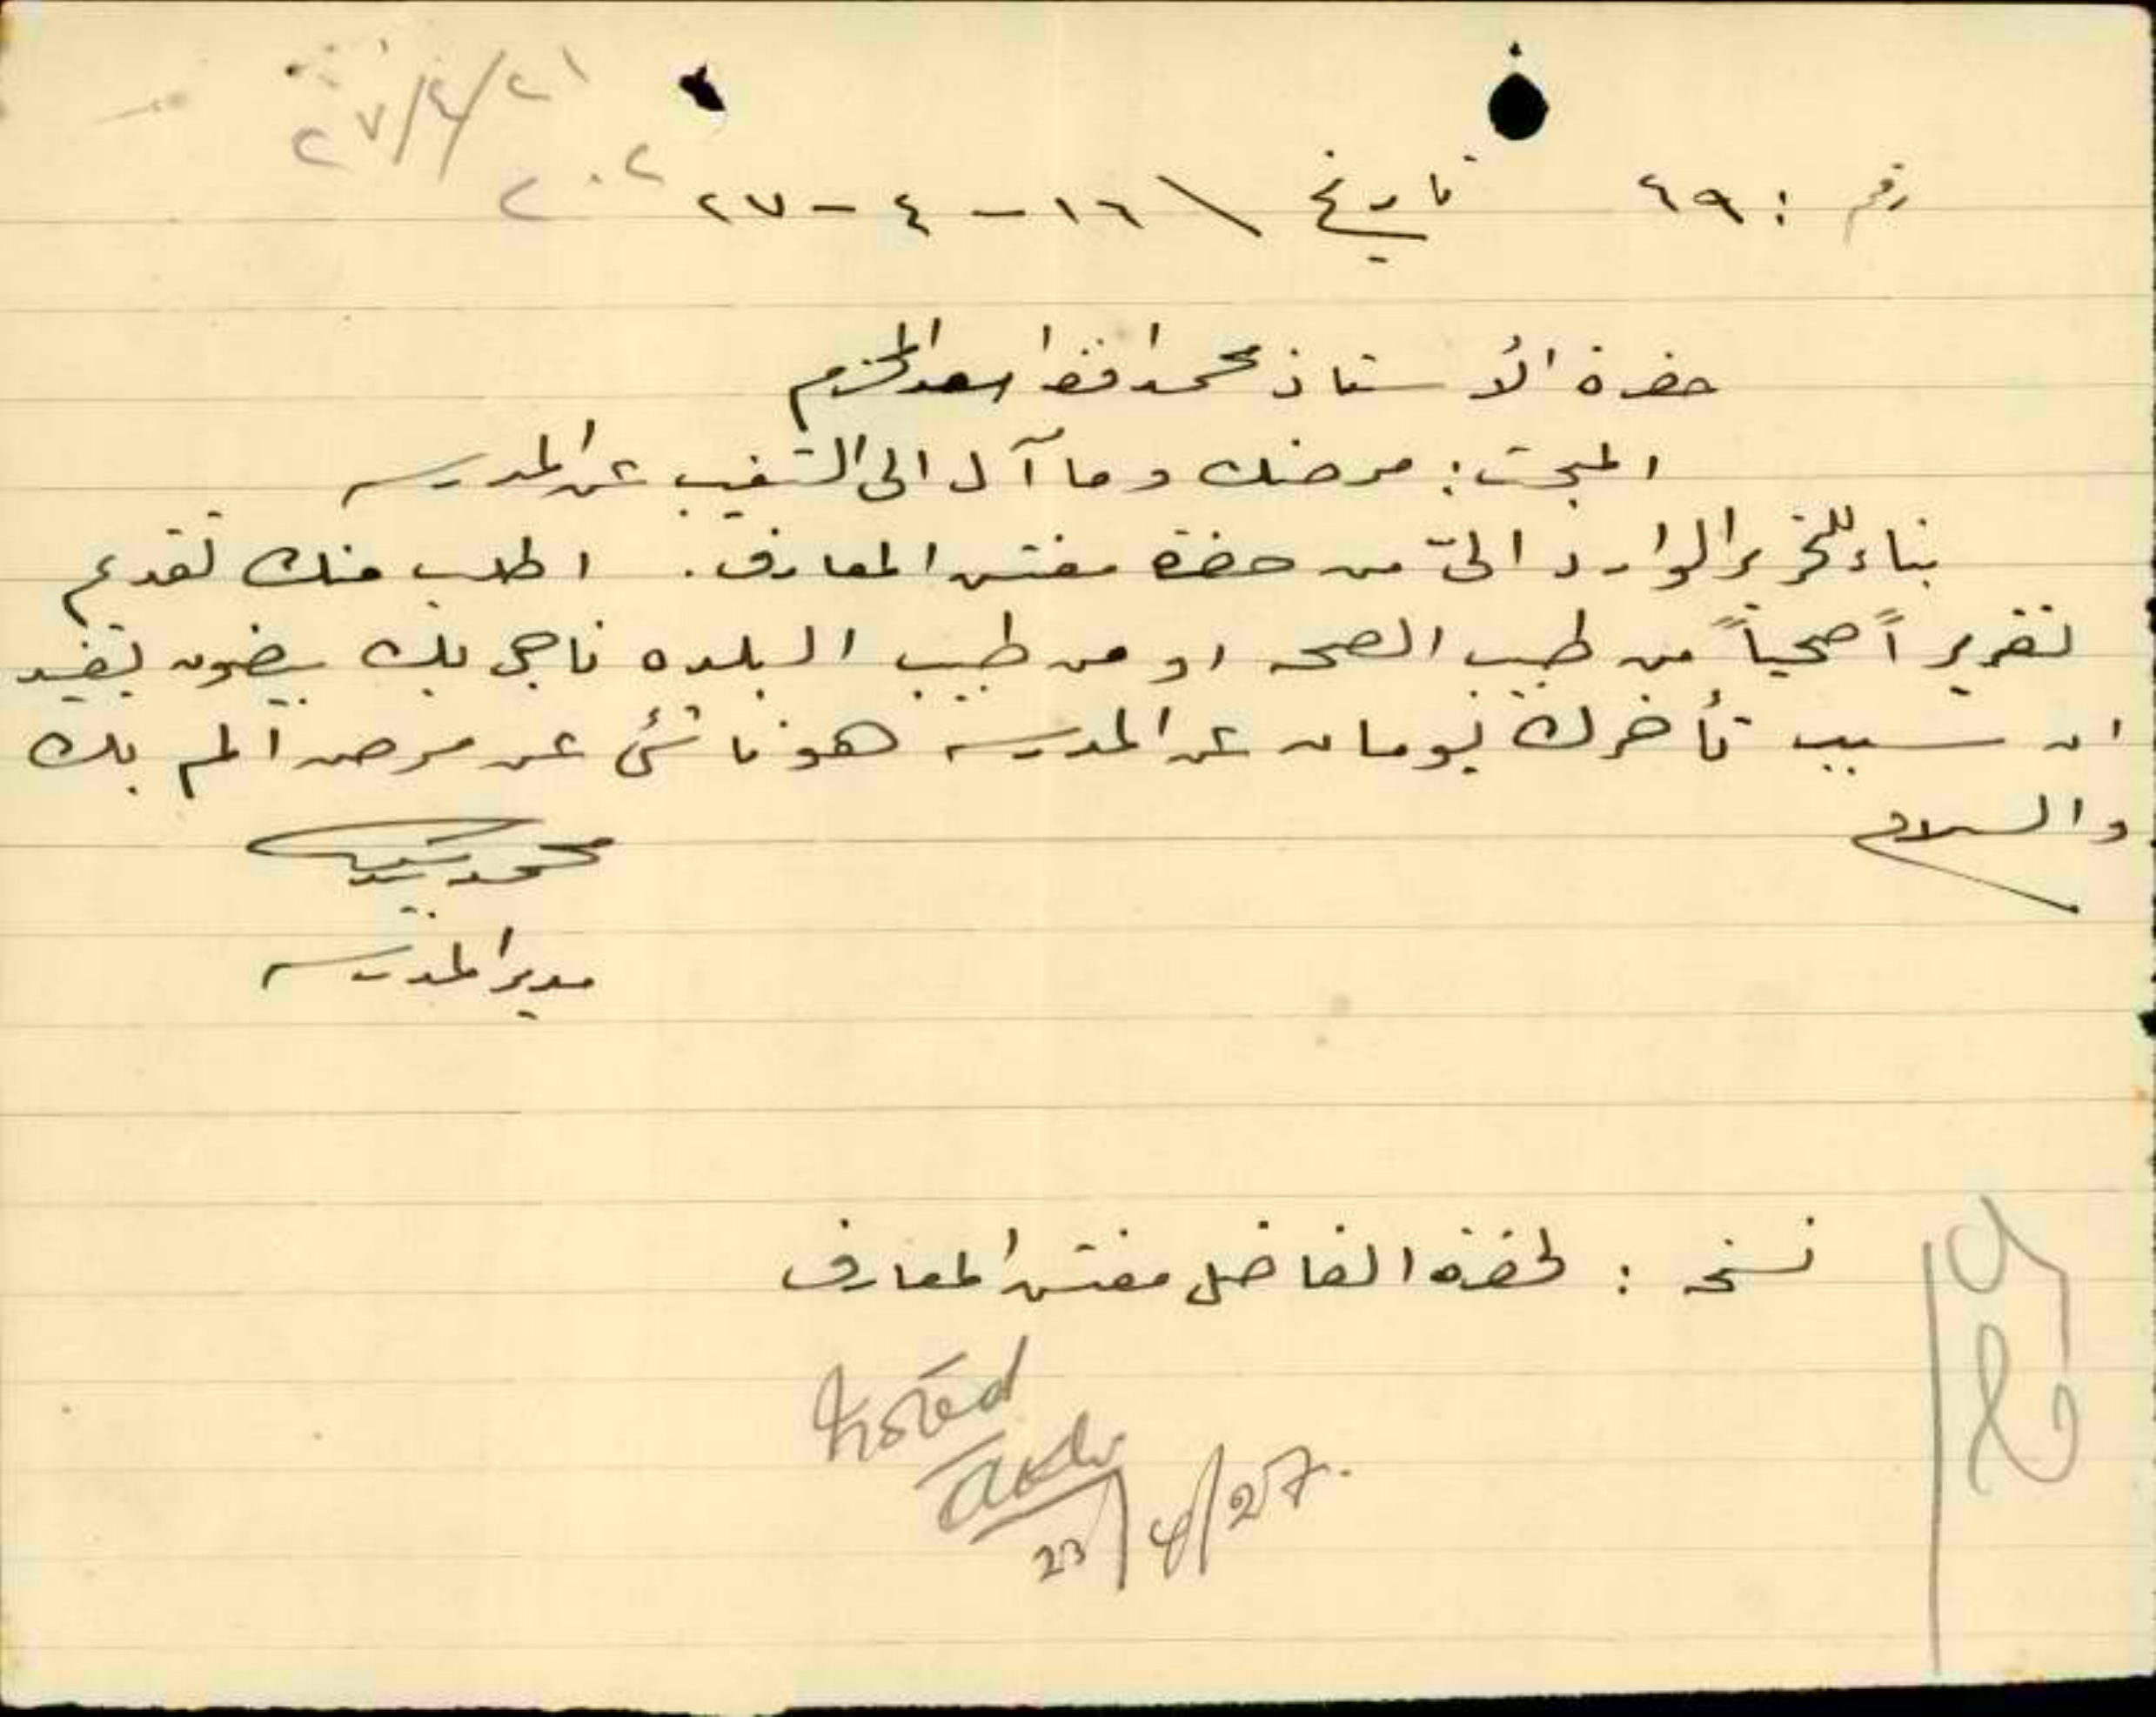 ٢٧/٤/٢١
٢٠٢
رقم : ٤٩ تاريخ \ ١٦ - ٤ - ٢٧
حضرة الأستاذ محمد افندي اسعد المحترم
المبحث : مرضك وما آل الى التغيب عن المدرسه
بناء للتحرير الوارد اليّ من حضرة مفتش المعارف . اطلب منك تقديم
تقريراً صحياً من طبيب الصحه او من طبيب البلده ناجي بك بيضون يفيد
ان سبب تأخرك يومان عن المدرسه هو ناشئ عن مرض الم بك
والسلام
محمد
مدير المدرسه
نسخه : لحضرة الفاضل مفتش المعارف
Noted
23/4/27.